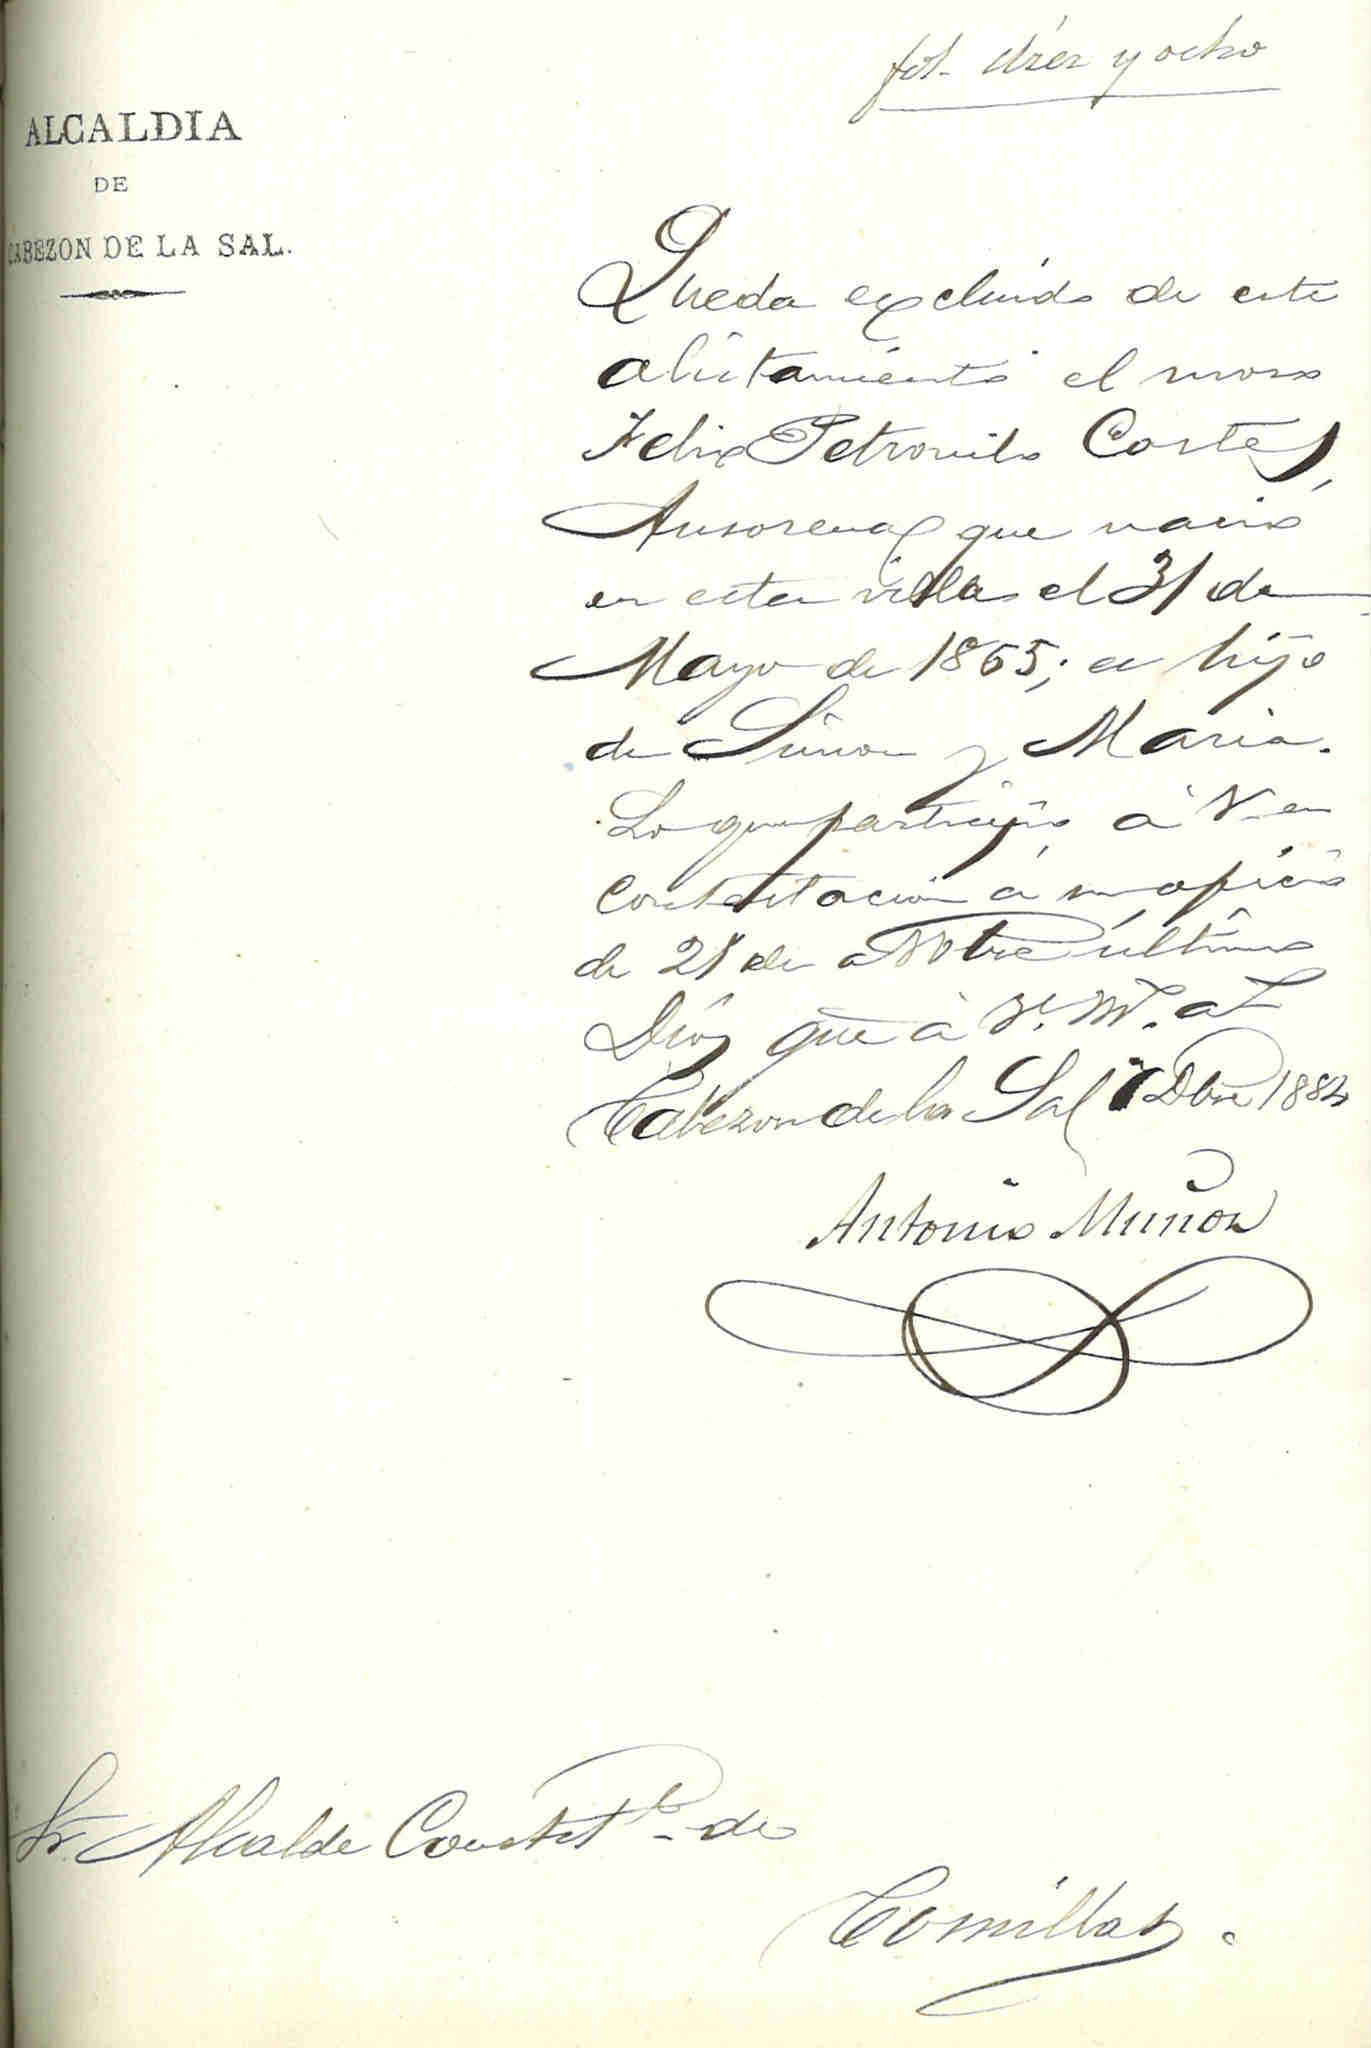 fol. diez y ocho
ALCALDIA
DE
CABEZON DE LA SAL.
Queda excluido de este
alistamiento el mozo
Felix Petronilo Cortes,
Ansorena, que nació
en esta villa el 31 de
Mayo de 1865; es hijo
de Simon y Maria.
Lo que participo á V. en
contestacion á su oficio
de 21 de Nobre último
Dios gue á V. m. a.
Cabezon de la Sal 7 Dbre 1884
Antonio Muñoz
Sr. Alcalde Constitl. de
Comillas.